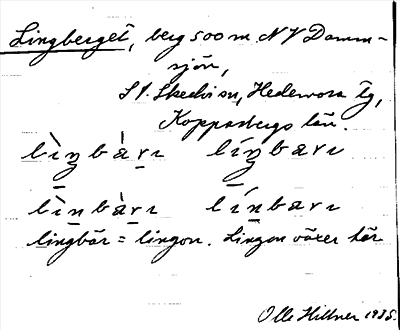 Lingberget, berg 500 m. NV Damm-
sjön,
St. Skedvi sn, Hedemora tg,
Kopparbergs län.
lìŋbàrı líŋbarı
lìnbàrı línbarı
lingbär = lingon. Lingon växer här
Olle Hillner 1935.